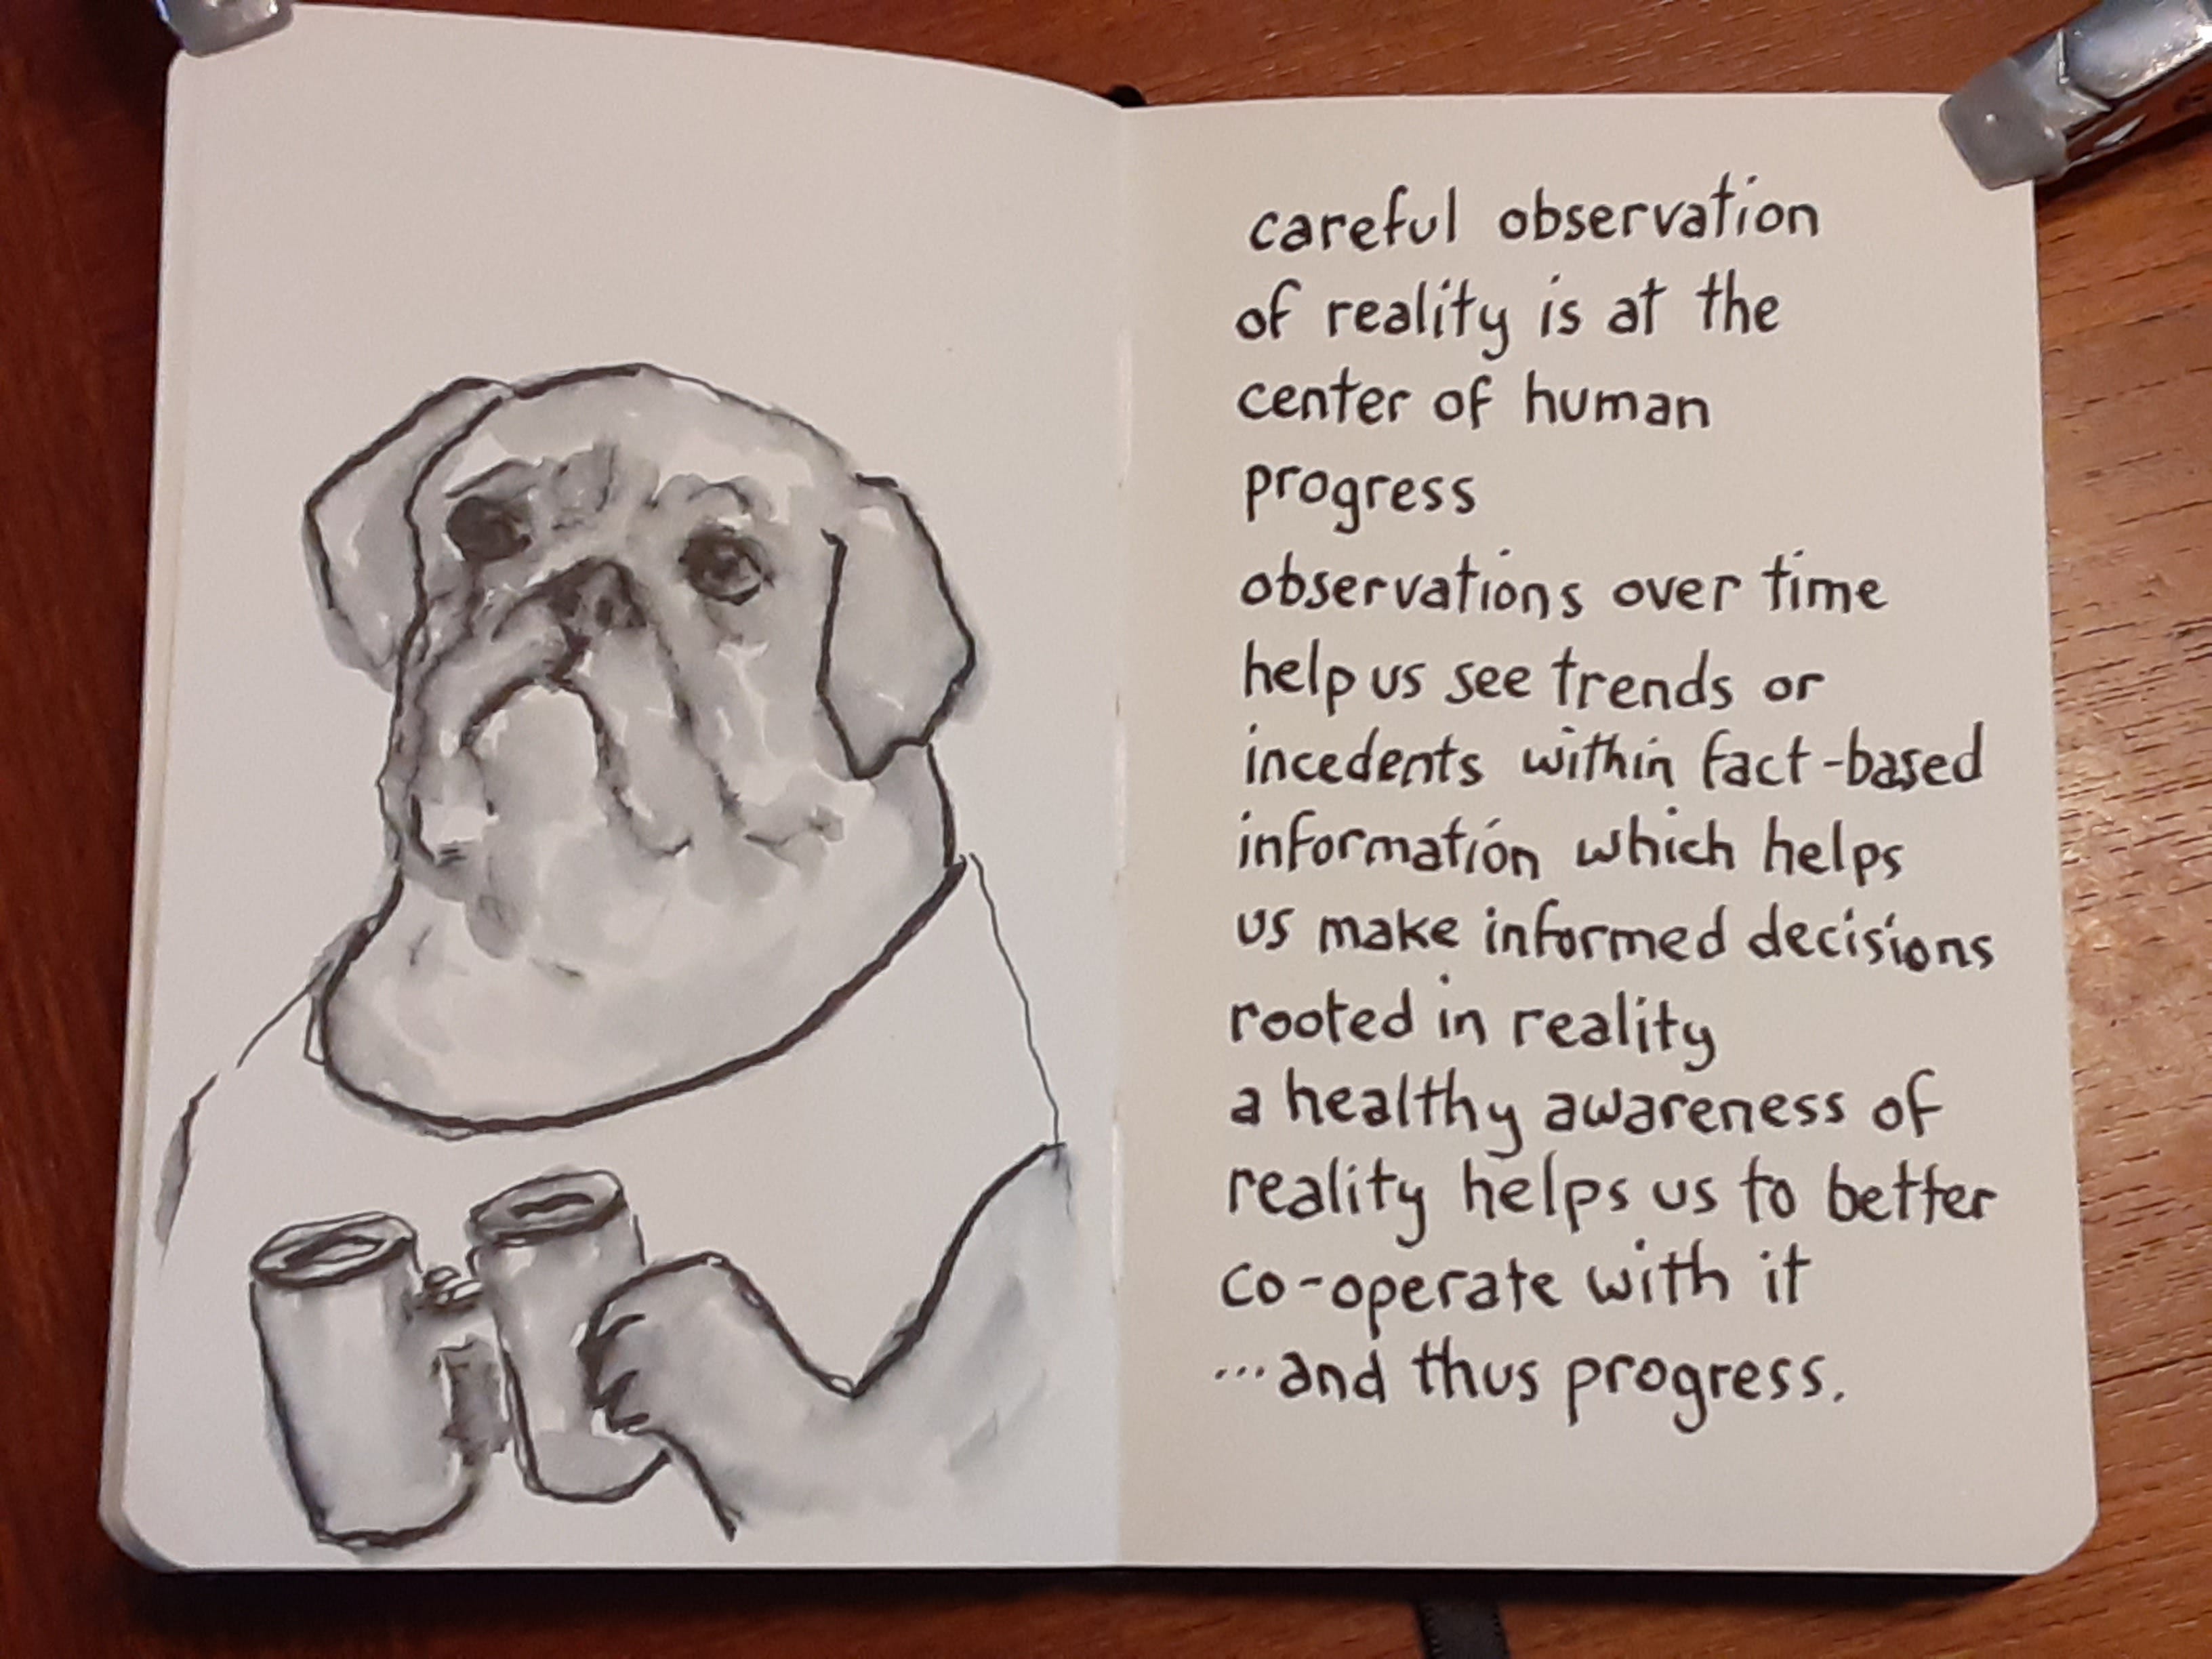 careful observation
of reality is at the
center of human
progress
observations over time
help us see trends or
incedents within fact-based
information which helps
us make informed decisions
rooted in reality
a healthy awareness of
reality helps us to better
co-operate with it
...and thus progress.